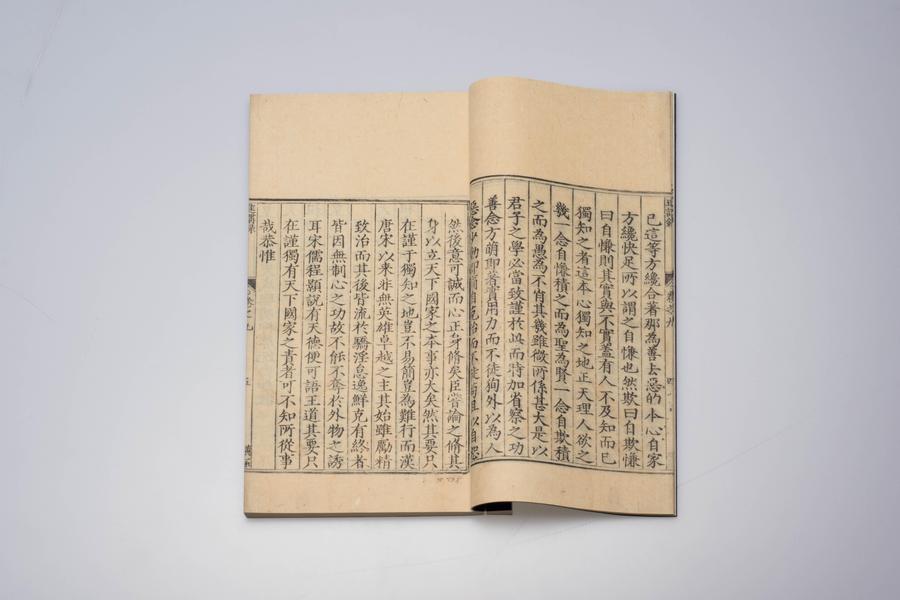 已這等方纔合著那為善去惡的本心自家
方纔快足所以謂之自慊也然欺曰自欺慊
曰自慊則其實與不實蓋有人不及知而己
獨知之者這本心獨知之地正天理人欲之
幾一念自慊積之而為聖為賢一念自欺積
之而為愚為不肖其幾雖微所係甚大是以
君子之學必當致謹於此而特加省察之功
善念方萌即著實用力而不徒狗外以為人
然後意可誠而心正身修矣臣嘗論之修其
身以立天下國家之本事亦大矣然其要只
在謹于獨知之地豈不易簡豈為難行而漢
唐宋以來非無英雄卓越之主其始雖勵精
致治而其後皆流於驕淫怠逸鮮克有終者
皆因無制心之功故不能不奪於外物之誘
耳宋儒程顥說有天德便可語王道其要只
在謹獨有天下國家之責者可不知所從事
哉恭惟
五